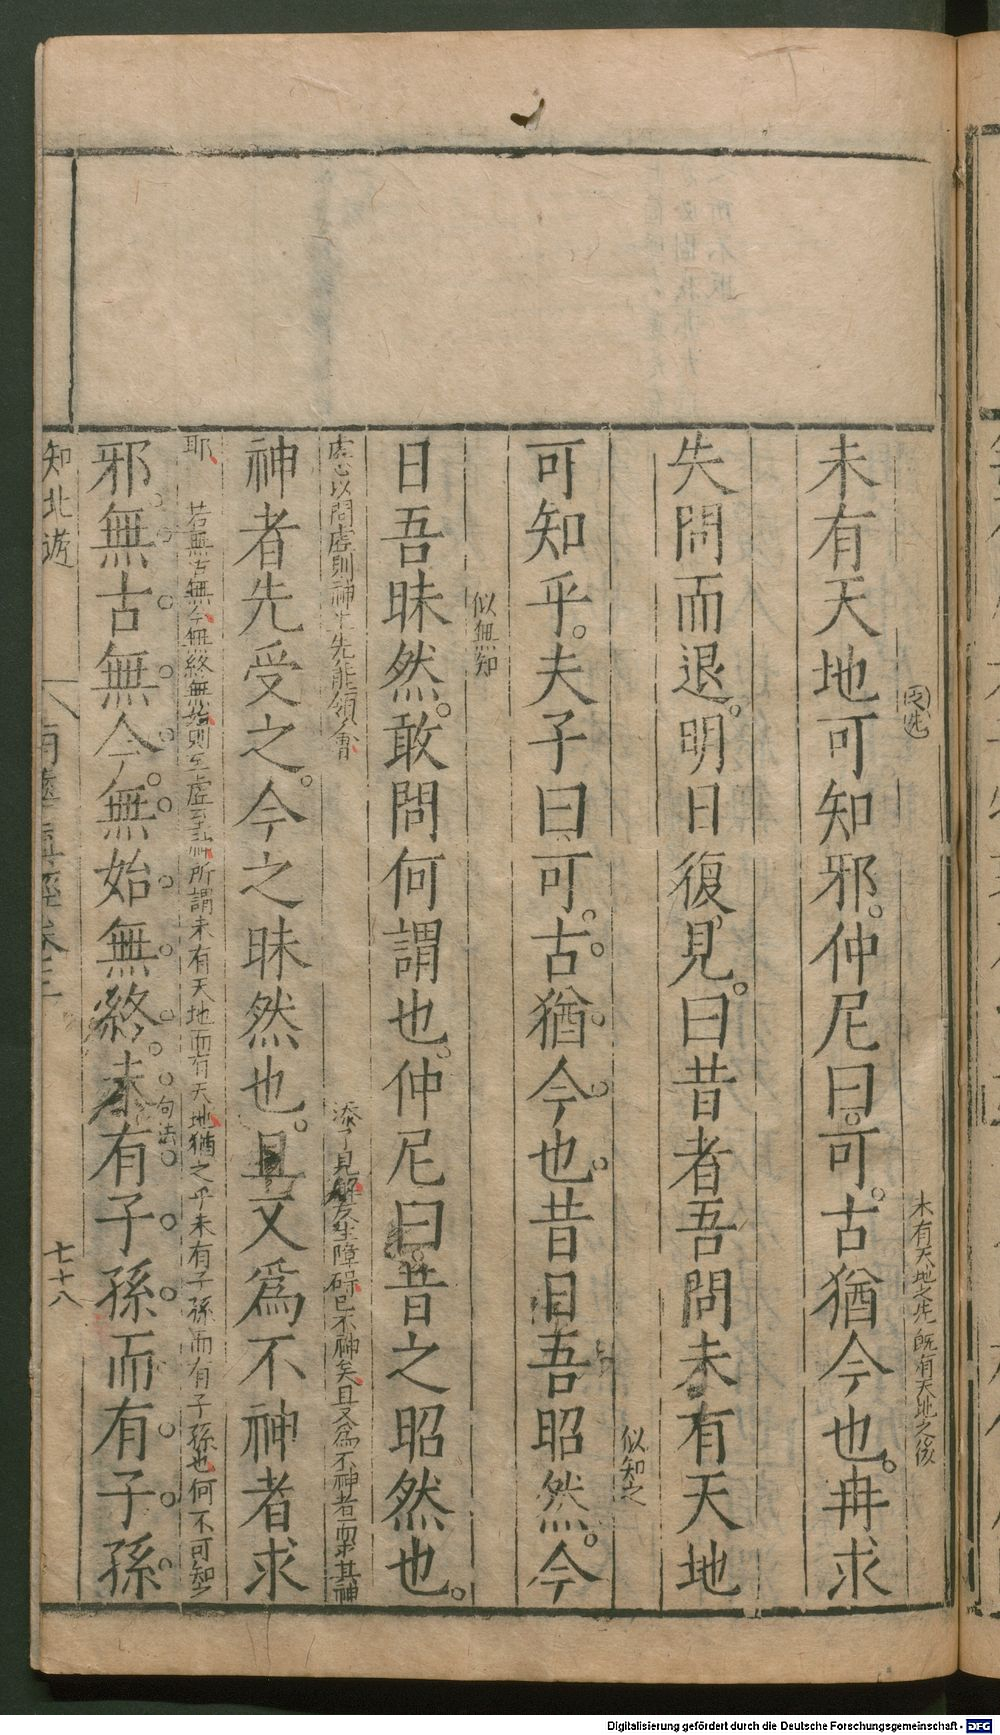 未有天地可知邪。仲尼曰。可。古猶今也。冉求
未有天地之先 既有天地之後
失問而退。明日復見。曰昔者吾問未有天地
似知之
可知乎。夫子曰可。古猶今也昔日吾昭然。今
似無知
日吾昧然。敢問何謂也。仲尼曰。昔之昭然也。
虛心以問虛則神先能領會
添了見解反生障碍已不神矣且又為不神者而求其神
神者先受之。今之昧然也。且又爲不神者求
耶
若無古無今無終無始則至虛至神所謂未有天地而有天地猶之乎未有子孫而有子孫也何不可知之
邪無古無今。無始無終。未有子孫而有子孫
句法
知北遊
南華真經卷三
七十八
Digitalisierung gefördert durch die Deutsche Forschungsgemeinschaft - DFG